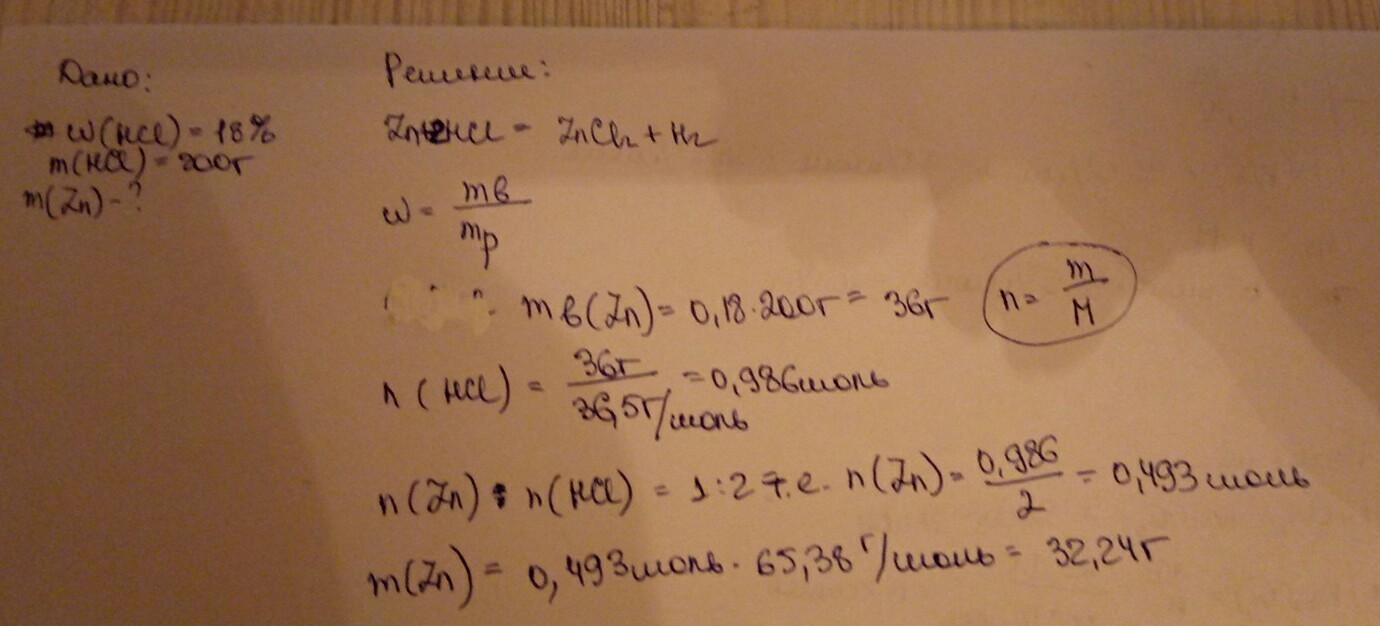 Дано:
w(HCl) = 18%
m(HCl) = 200г
m(Zn) - ?
Решение:
Zn+2HCl = ZnCl₂ + H₂
w = mв/mр
mв(Zn) = 0,18·200г = 36г
n = m/M
n(HCl) = 36г/36,5г/моль = 0,986моль
n(Zn) : n(HCl) = 1:2 т.е. n(Zn) = 0,986/2 = 0,493 моль
m(Zn) = 0,493моль · 65,38 г/моль = 32,24г